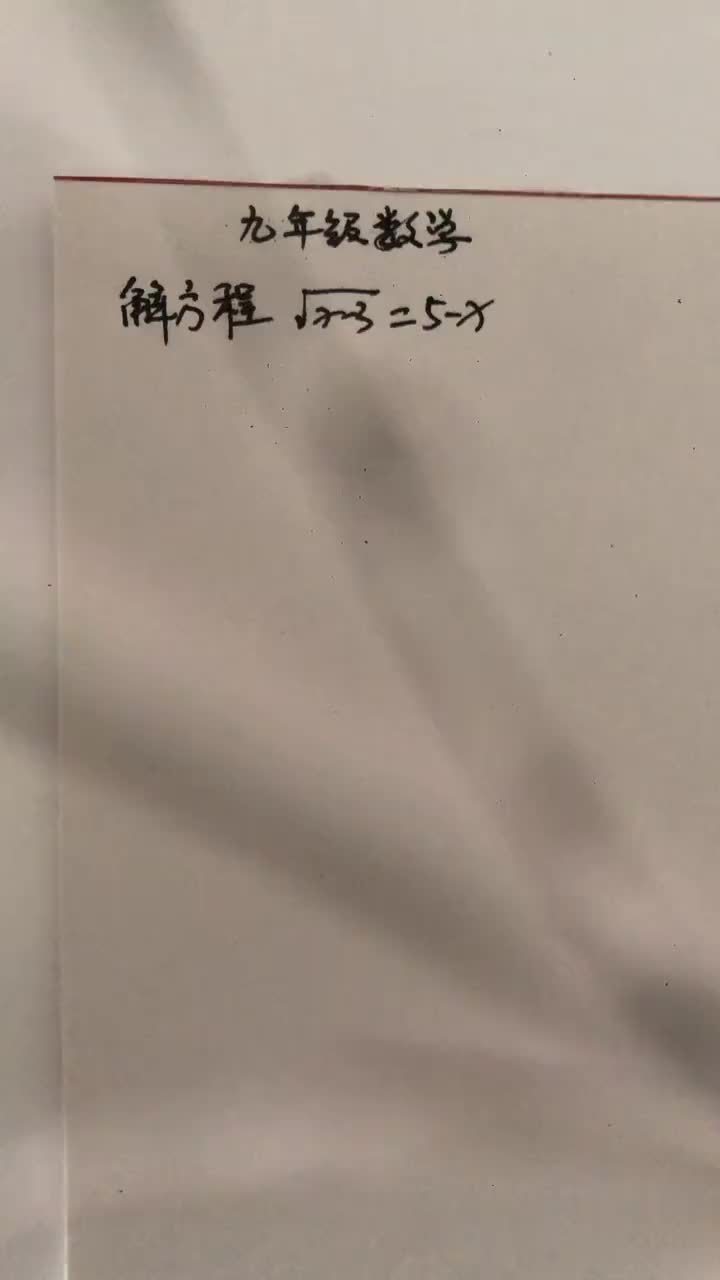 九年级数学
解方程 √(x-3) = 5-x